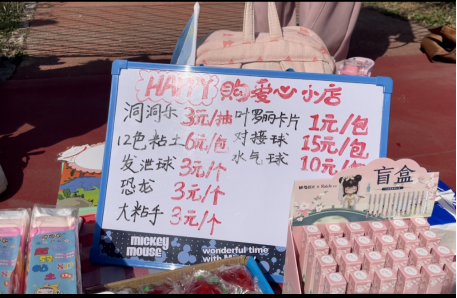 HAPPY 购爱心小店
洞洞乐 3元/抽 叶罗丽卡片 1元/包
12色粘土 6元/包 对接球 15元/包
发泄球 3元/个 水气球 10元/
恐龙 3元/个
大粘手 3元/个
盲盒
MICKEY
MOUSE
wonderful time
with